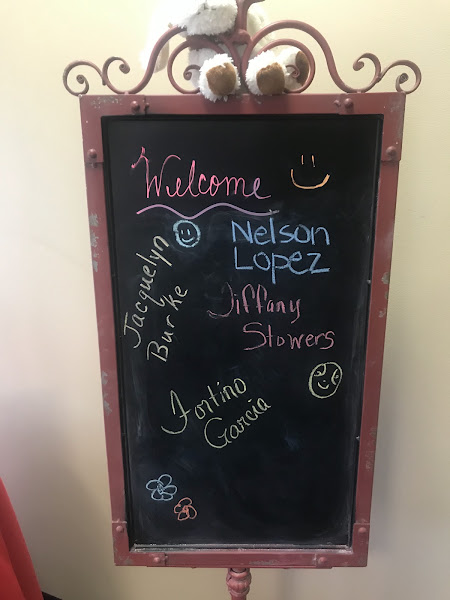 Welcome
Nelson
Lopez
Jacquelyn
Burke
Tiffany
Stowers
Fortino
Garcia